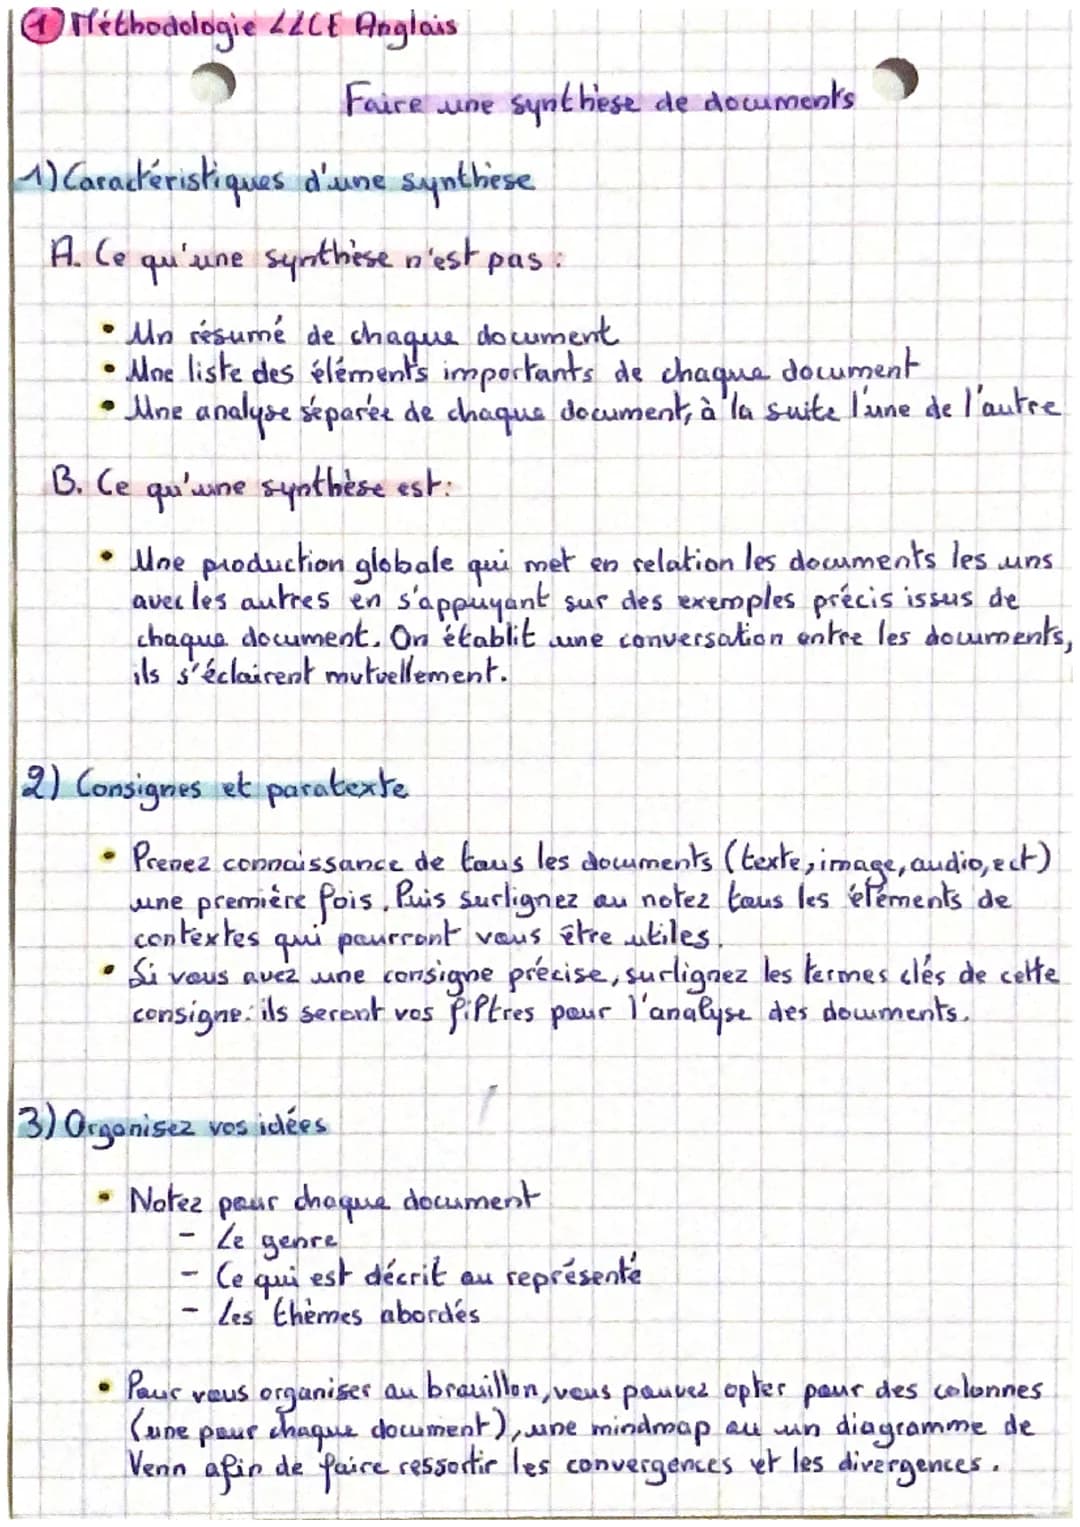 ① Méthodologie LLCE Anglais
Faire une synthèse de documents
1) Caractéristiques d'une synthèse
A. Ce qu'une synthèse n'est pas :
• Un résumé de chaque document
• Une liste des éléments importants de chaque document
• Une analyse séparée de chaque document, à la suite l'une de l'autre
B. Ce qu'une synthèse est :
• Une production globale qui met en relation les documents les uns
avec les autres en s'appuyant sur des exemples précis issus de
chaque document. On établit une conversation entre les documents,
ils s'éclairent mutuellement.
2) Consignes et paratexte
• Prenez connaissance de tous les documents (texte, image, audio, ect)
une première fois. Puis surlignez ou notez tous les éléments de
contextes qui pourront vous être utiles.
• Si vous avez une consigne précise, surlignez les termes clés de cette
consigne : ils seront vos filtres pour l'analyse des documents.
3) Organisez vos idées
• Notez pour chaque document
- Le genre
- Ce qui est décrit ou représenté
- Les thèmes abordés
• Pour vous organiser au brouillon, vous pouvez opter pour des colonnes
(une pour chaque document), une mindmap ou un diagramme de
Venn afin de faire ressortir les convergences et les divergences.